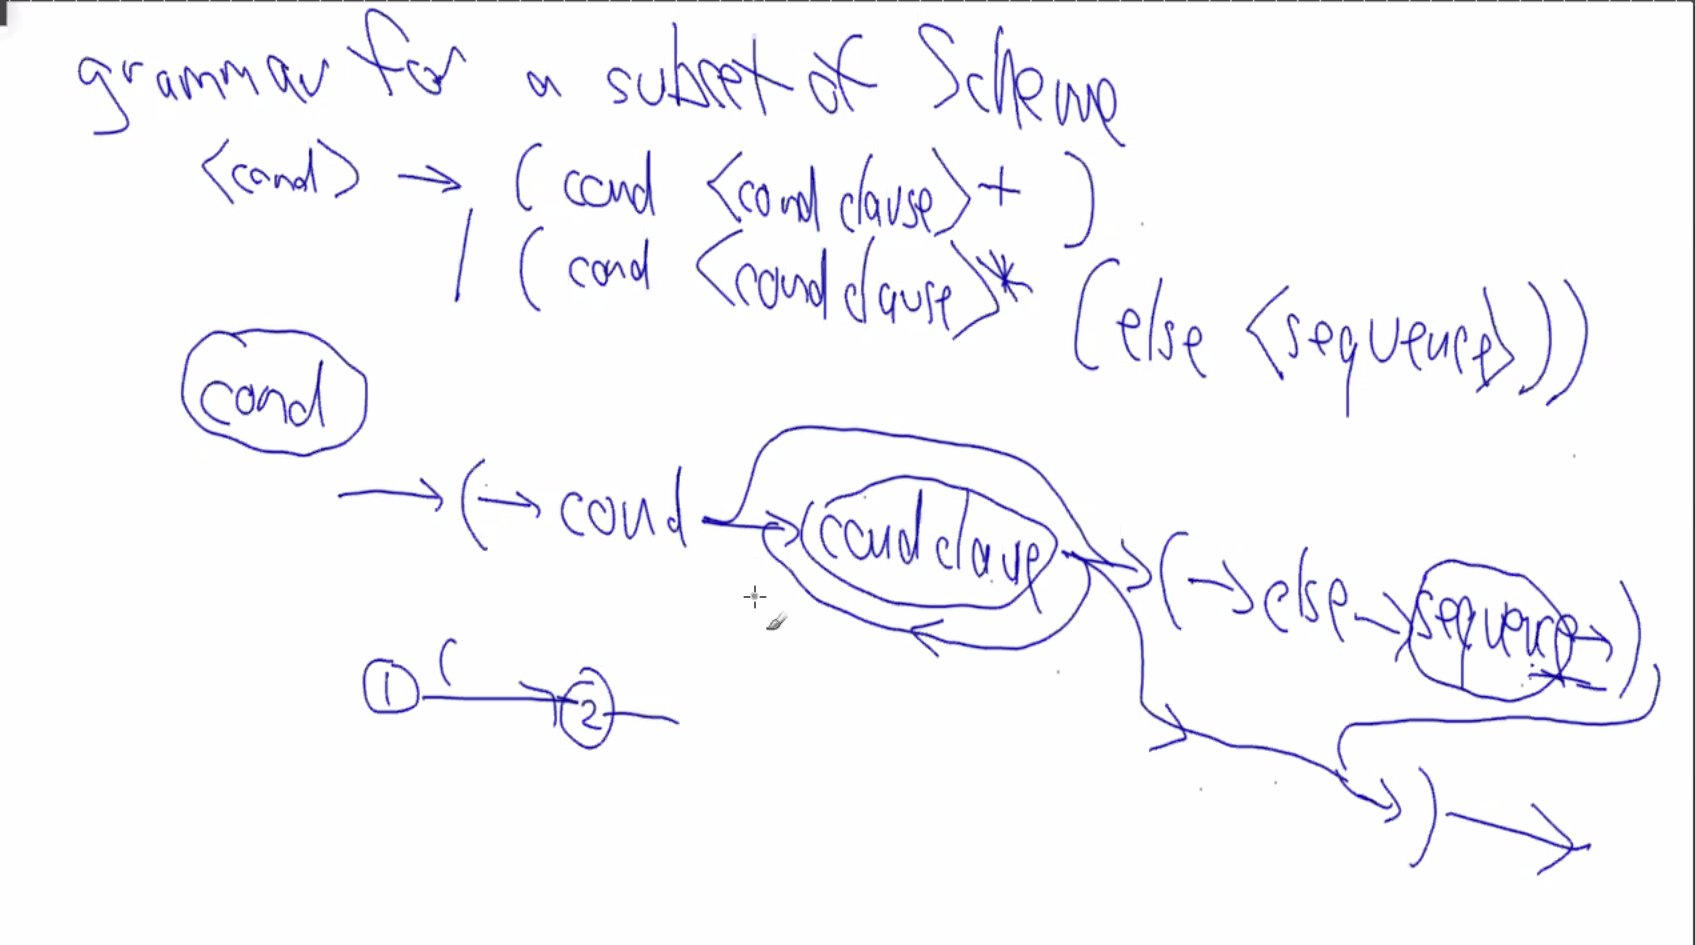 grammar for a subset of Scheme
<cond> → ( cond <cond clause>+ )
| ( cond <cond clause>* (else <sequence>))
cond
→ ( → cond → cond clause → ( → else → sequence → )
1 ( 2
) →